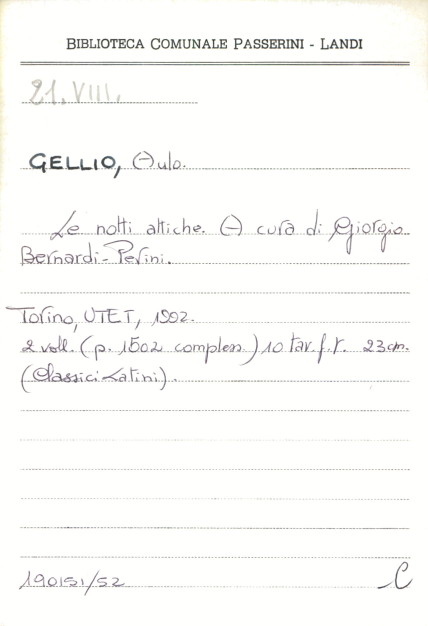 BIBLIOTECA COMUNALE PASSERINI - LANDI
21.VIII.
GELLIO, Aulo.
Le notti attiche. A cura di Giorgio
Bernardi-Perini.
Torino, UTET, 1992.
2 voll. (p. 1502 compless.) 10 tav. f.t. 23 cm.
(Classici Latini).
190151/52
C